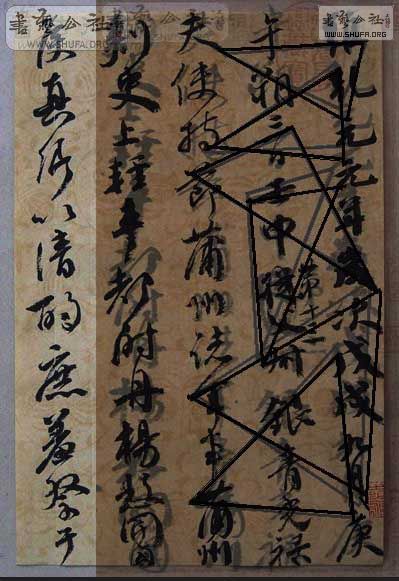 書藝公社
WWW.SHUFA.ORG
書藝公社
WWW.SHUFA.ORG
維乾元元年歲次戊戌九月庚
午朔三日壬申從父叔銀青光祿
第十三
夫使持節蒲州諸軍事蒲州
刺史上輕車都尉丹楊縣開國
侯真卿以清酌庶羞祭于